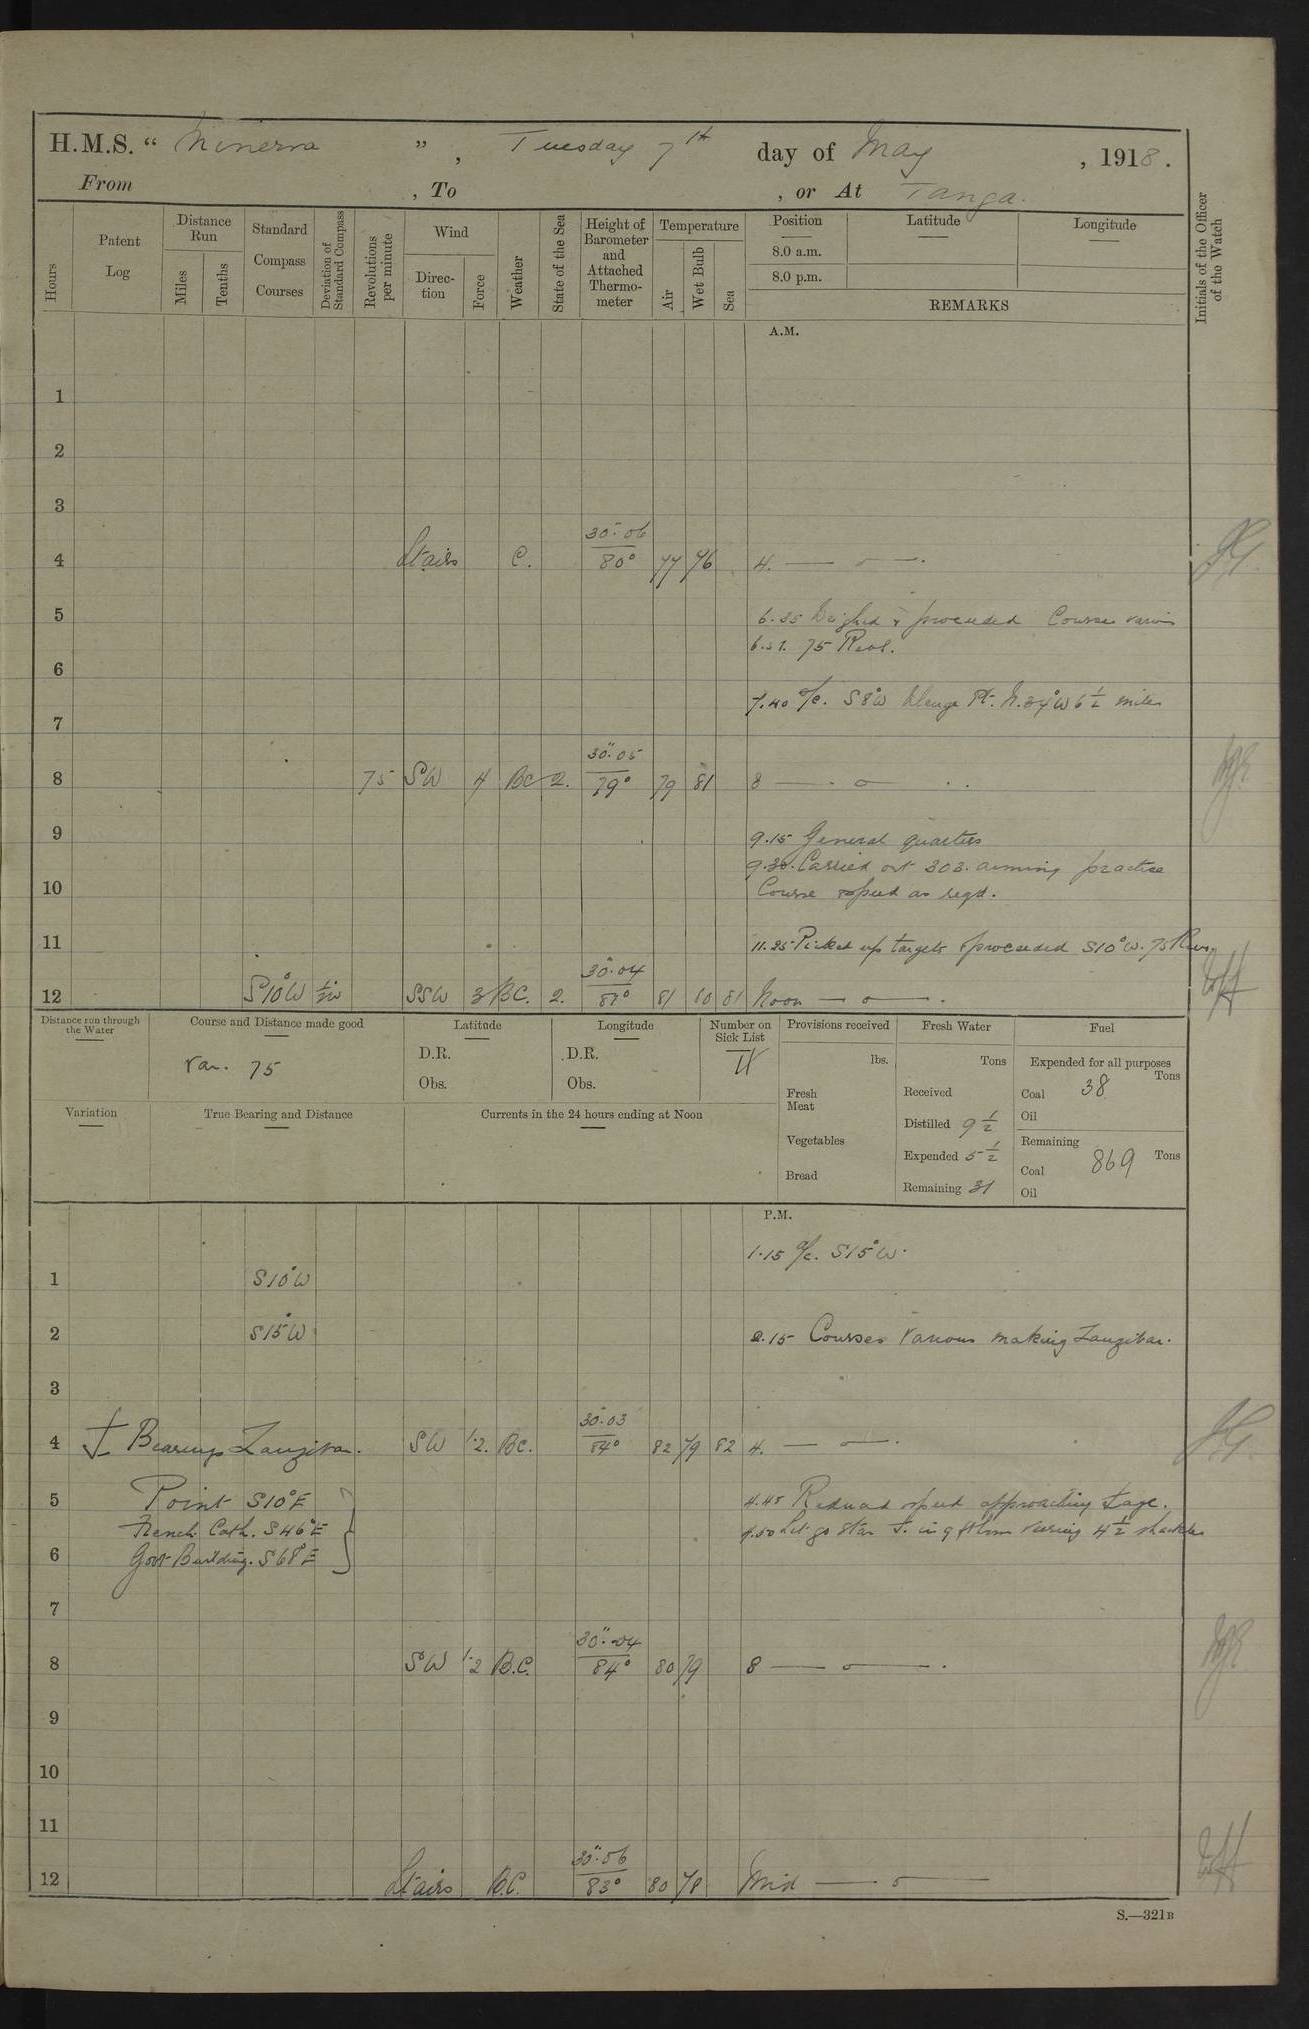 H.M.S. “ Minerva ” , Tuesday 7th day of May , 1918.
From , To , or At Tanga.
Hours
Patent Log
Distance Run
Miles
Tenths
Standard Compass Courses
Deviation of Standard Compass
Revolutions per minute
Wind
Direction
Force
Weather
State of the Sea
Height of Barometer and Attached Thermometer
Temperature
Air
Wet Bulb
Sea
Position
8.0 a.m.
8.0 p.m.
Latitude
Longitude
REMARKS
Initials of the Officer of the Watch
A.M.
1
2
3
4 Lt airs C. 30.06 80° 77 76 4. — o — .
5 6.25 Weighed & proceeded Courses
75 Revl.
6
7.40 a/c. S8°W Pt. N.34°W 6½ miles
7
8 75 SW 4 BC 2. 30".05 79° 79 81 8 — o —
9 9.15 General quarters
9.30. Carried out 303. aiming practice
10 Course & speed as reqd.
11 11.25 Picked up targets & proceeded S10°W. 75 Revs.
12 S10°W SSW 3 BC. 2. 30".04 81 80 81 Noon — o — .
Distance run through the Water
Course and Distance made good
Var. 75
Latitude
D.R.
Obs.
Longitude
D.R.
Obs.
Number on Sick List
Provisions received
lbs.
Fresh Meat
Vegetables
Bread
Fresh Water
Tons
Received
Distilled 9½
Expended 5½
Remaining 31
Fuel
Expended for all purposes
Tons
Coal 38
Oil
Remaining
Coal 869 Tons
Oil
Variation
True Bearing and Distance
Currents in the 24 hours ending at Noon
P.M.
1.15 a/c. S15°W.
1 S10°W
2 S15°W 2.15 Courses various making Zanzibar.
3
4 Bearings Zanzibar. SW 1.2. BC. 30".03 84° 82 79 82 4. — o — .
5 Point S10°E 4.45 Reduced speed approaching
French Cath. S46°E let go Star in 9 fthm veering 4½ shackles
6 Govt Building. S68°E
7
8 SW 1.2 B.C. 30".04 84° 80 79 8 — o — .
9
10
11
12 Lt airs B.C. 30".06 83° 80 78 Mid — o —
S.—321B